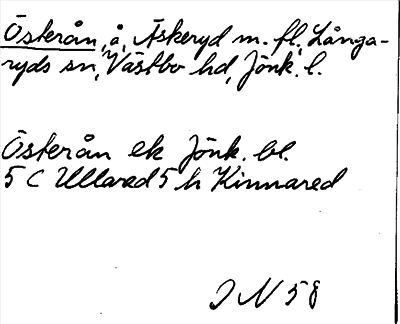 Österån, å, Äskeryd m. fl., Långa-
ryds sn, Västbo hd, Jönk. l.
Österån ek Jönk. bl.
5 C Ullared 5 h Kinnared
J N 58